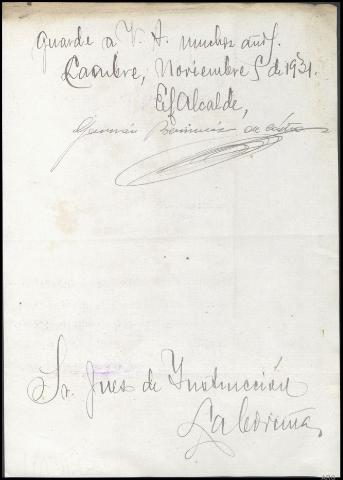 guarde a V. S. muchos años.
Cambre, Noviembre 5 de 1931.
El Alcalde,
Germán de Castro
Sr. Juez de Instrucción
La Coruña